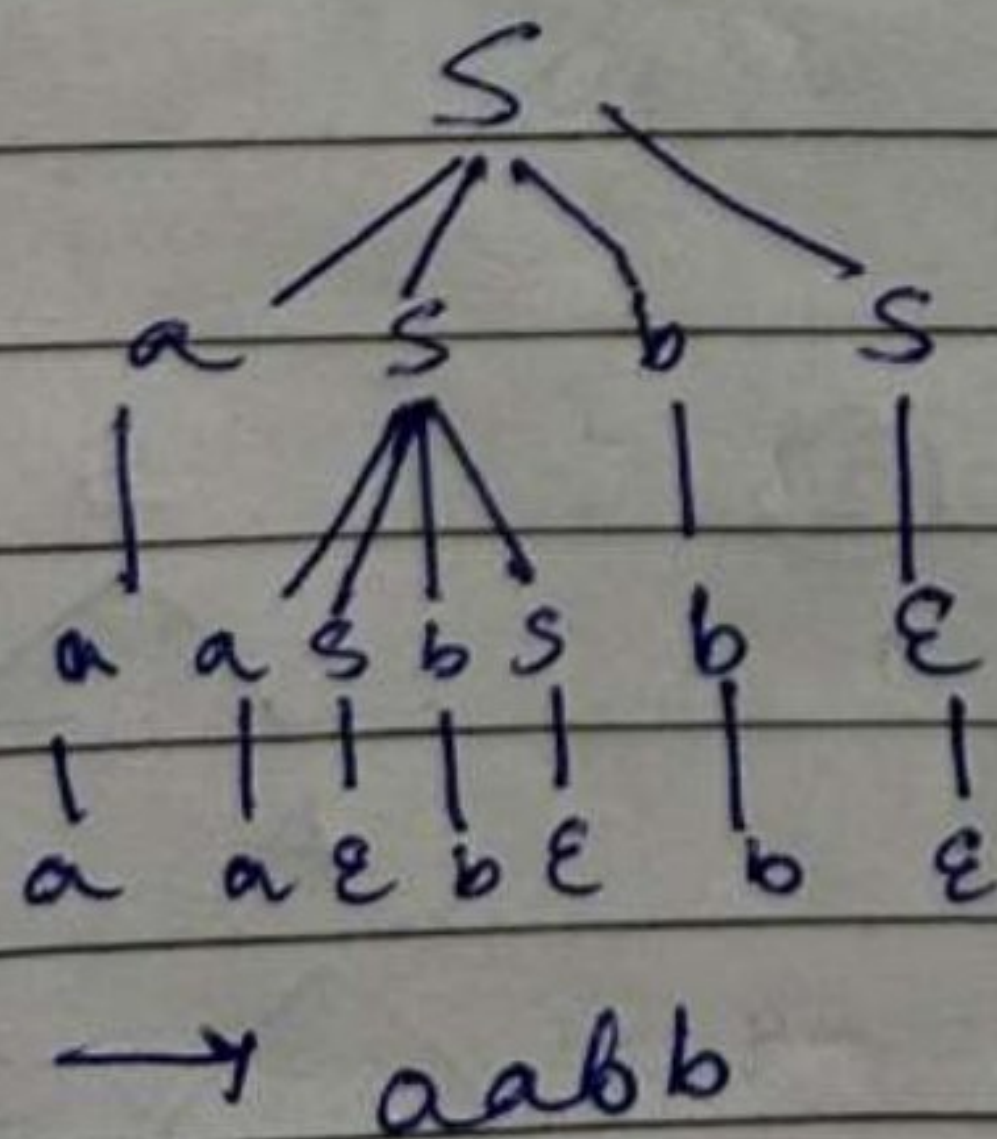 S
a S b S
a a S b S b ε
a a ε b ε b ε
→ aabb